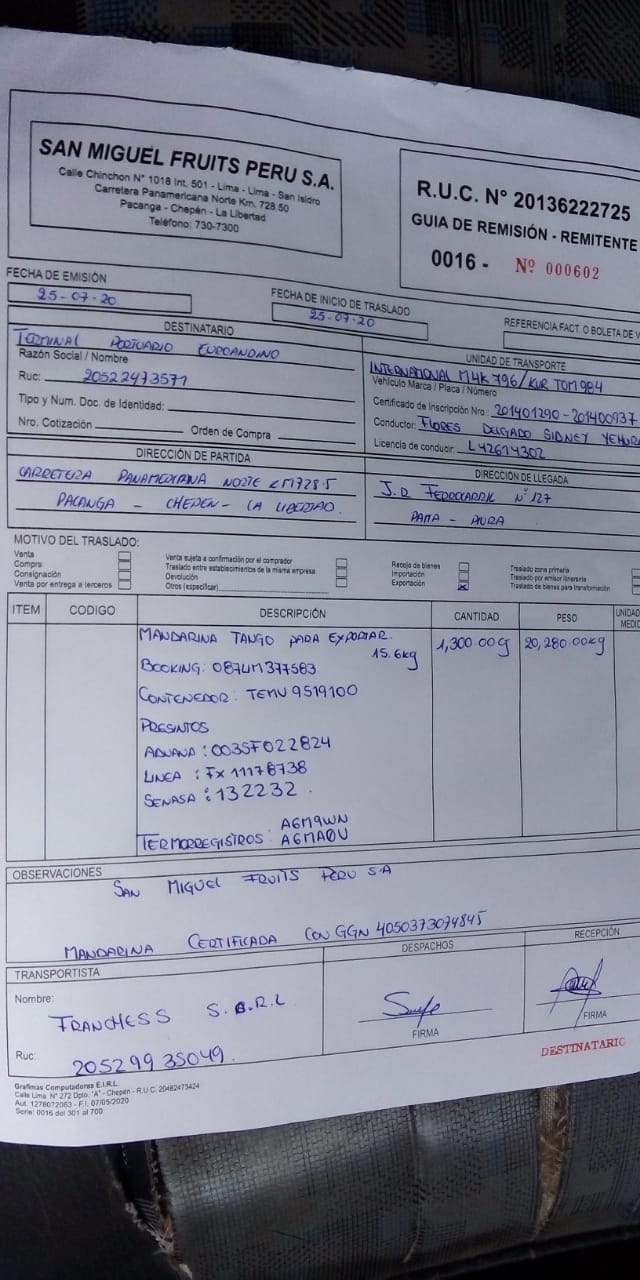 SAN MIGUEL FRUITS PERU S.A.
Calle Chinchon N° 1018 Int. 501 - Lima - Lima - San Isidro
Carretera Panamericana Norte Km. 728.50
Pacanga - Chepén - La Libertad
Teléfono: 730-7300
R.U.C. N° 20136222725
GUIA DE REMISIÓN - REMITENTE
0016 - Nº 000602
FECHA DE EMISIÓN
25-07-20
FECHA DE INICIO DE TRASLADO
25-07-20
REFERENCIA FACT. O BOLETA DE V
DESTINATARIO
TERMINAL PORTUARIO EUROANDINO
Razón Social / Nombre
Ruc: 20522473571
Tipo y Num. Doc. de Identidad:
Nro. Cotización Orden de Compra
UNIDAD DE TRANSPORTE
INTERNATIONAL M4K 796/KUR TOM 984
Vehículo Marca / Placa / Número
Certificado de Inscripción Nro.: 201401290-201400937
Conductor: FLORES DELGADO SIDNEY
Licencia de conducir: L42614302
DIRECCIÓN DE PARTIDA
CARRETERA PANAMERICANA NORTE KM 728.5
PACANGA - CHEPEN - LA LIBERTAD.
DIRECCIÓN DE LLEGADA
J.R FERROCARRIL N° 127
PAITA - PIURA
MOTIVO DEL TRASLADO:
Venta
Compra
Consignación
Venta por entrega a terceros
Venta sujeta a confirmación por el comprador
Traslado entre establecimientos de la misma empresa
Devolución
Otros (especificar)
Recojo de bienes
Importación
Exportación X
Traslado zona primaria
Traslado por emisor itinerante
Traslado de bienes para transformación
ITEM CODIGO DESCRIPCIÓN CANTIDAD PESO UNIDAD MEDID
MANDARINA TANGO PARA EXPORTAR. 1,300.00 20,280.00kg
15.6kg
BOOKING: 087LIM377583
CONTENEDOR: TEMU 9519100
PRESINTOS
ADUANA: 0035F022824
LINEA : FX 11178738
SENASA : 132232.
A6M9WN
TERMORREGISTROS: A6MA0U
OBSERVACIONES
SAN MIGUEL FRUITS PERU S.A
MANDARINA CERTIFICADA CON GGN 4050373074845
TRANSPORTISTA
Nombre: FRANCHESS S.R.L
Ruc: 20529935049.
DESPACHOS
FIRMA
RECEPCIÓN
FIRMA
DESTINATARIO
Grafimas Computadores E.I.R.L.
Calle Lima N° 272 Dpto. "A" - Chepén - R.U.C. 20482473424
Aut. 1278072063 - F.I. 07/05/2020
Serie: 0016 del 301 al 700